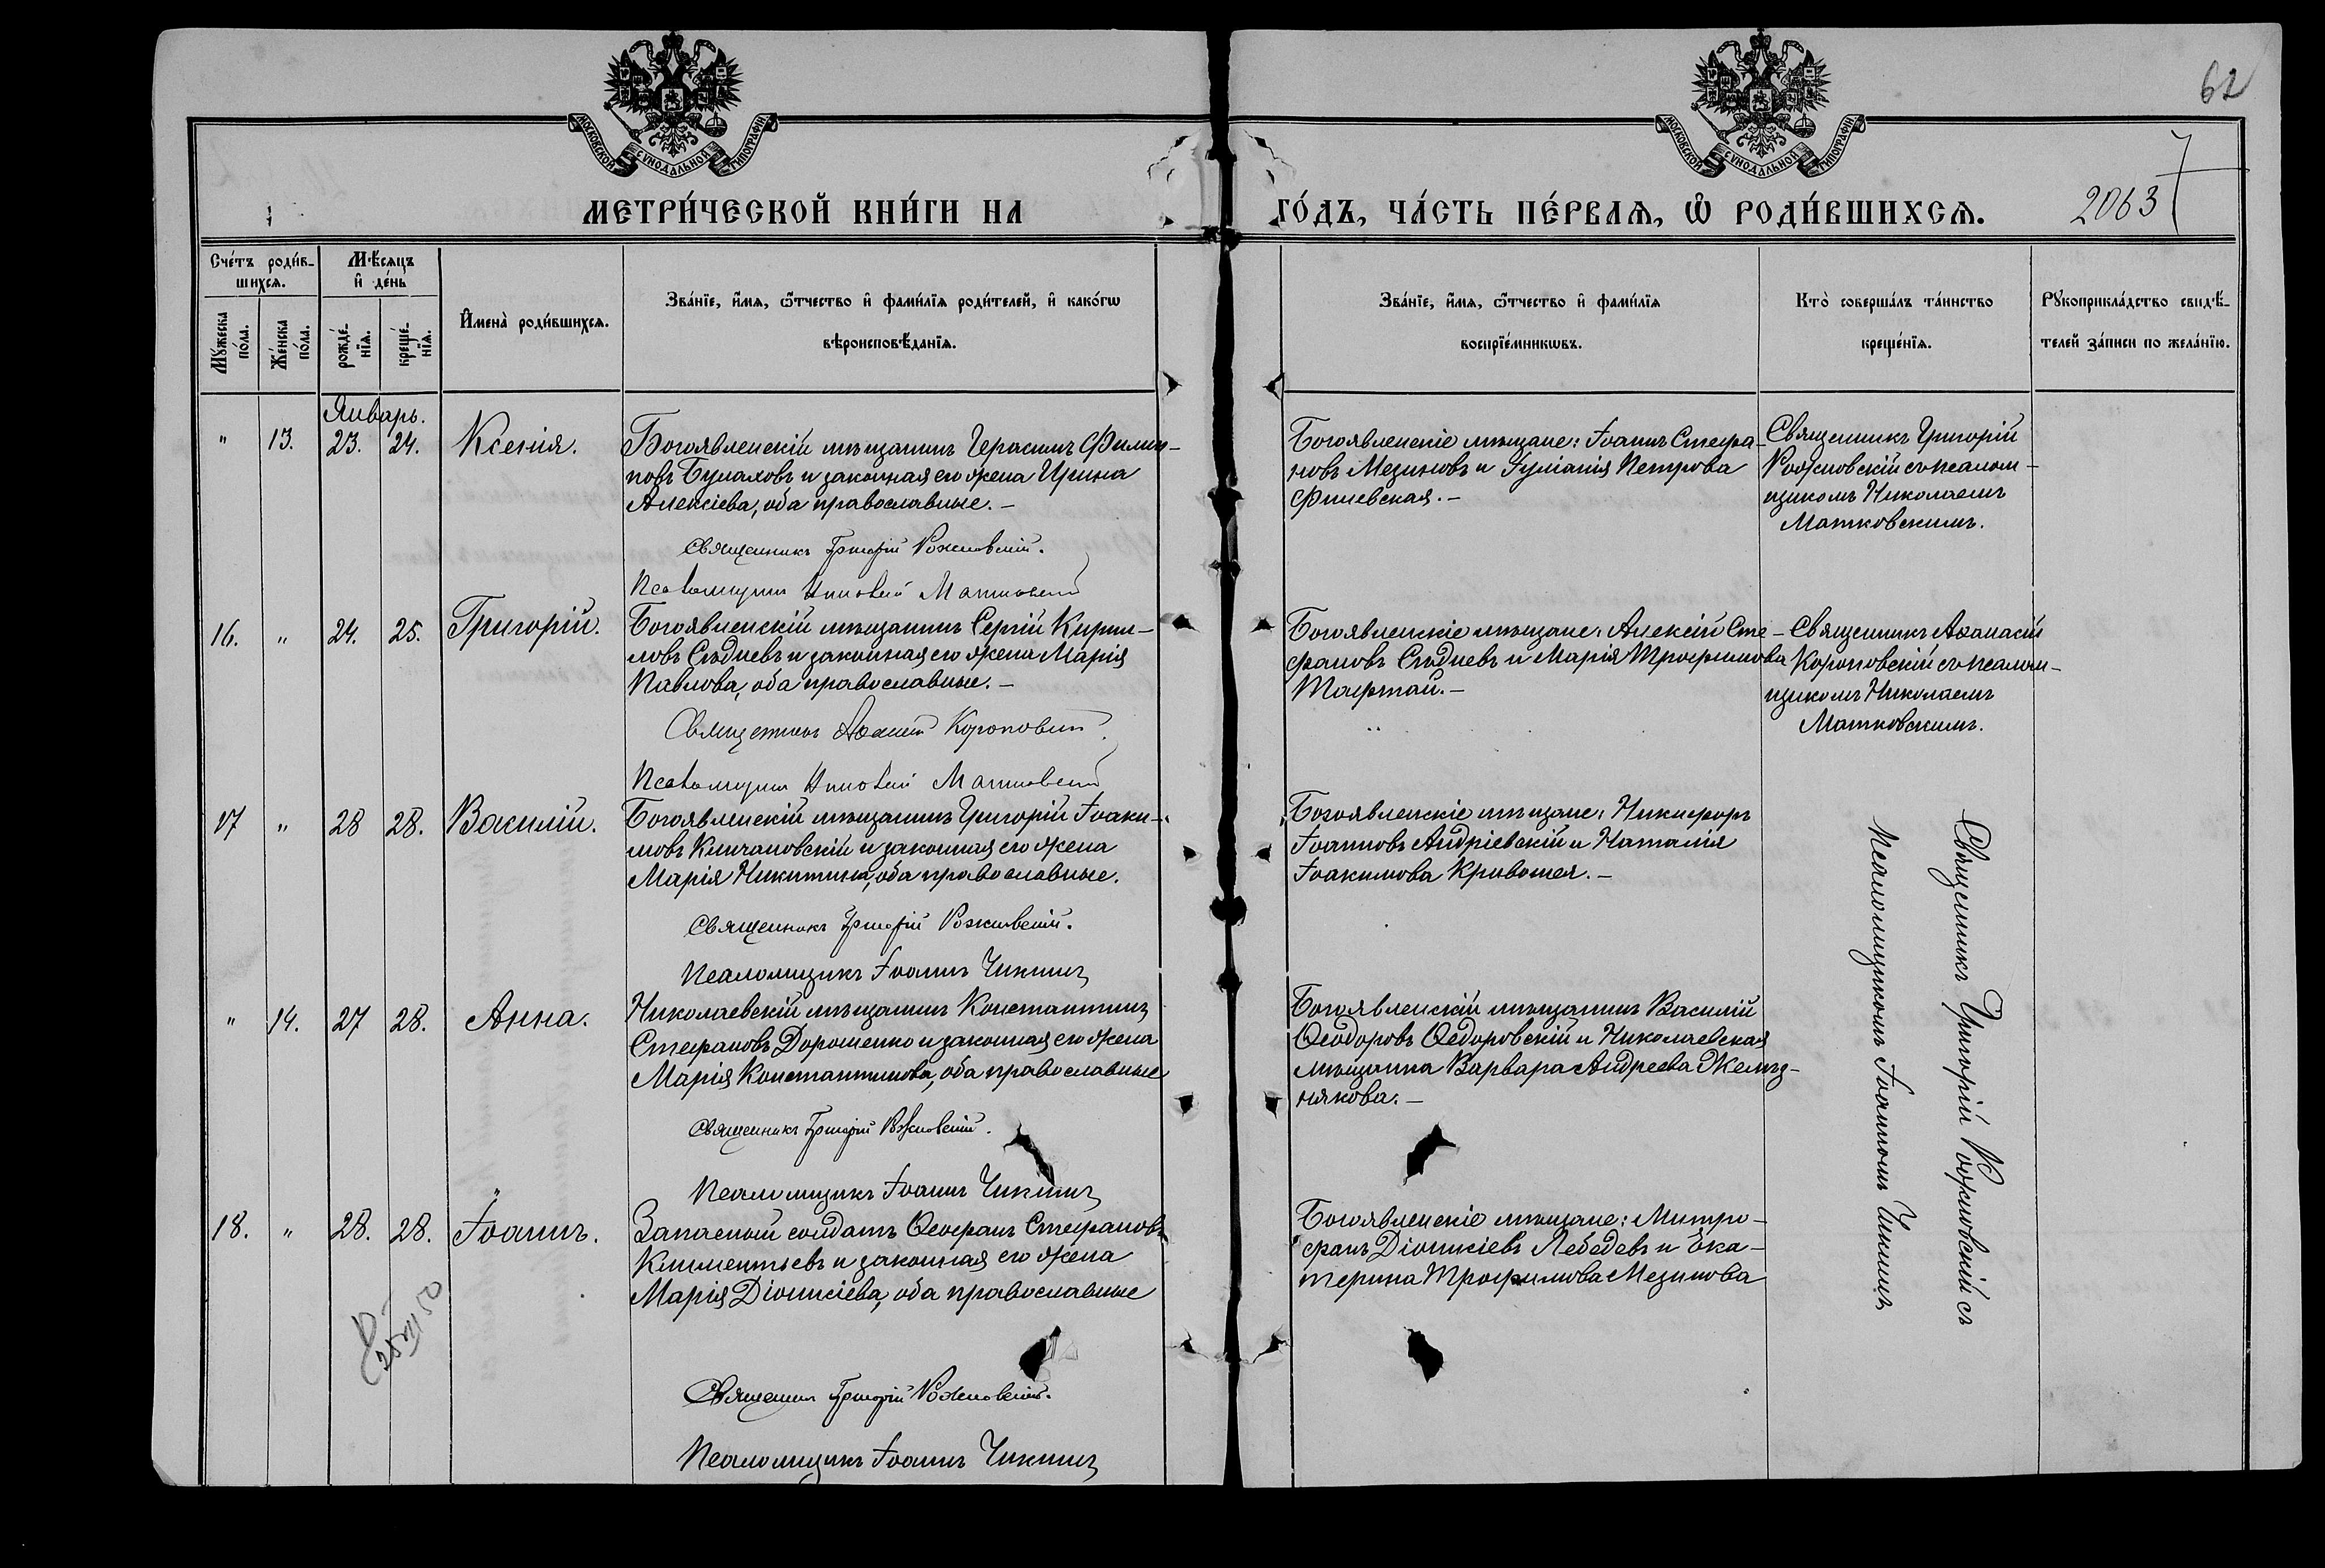 62
МОСКОВСКОЙ СѴНОДАЛЬНОЙ ТИПОГРАФІИ
МОСКОВСКОЙ СѴНОДАЛЬНОЙ ТИПОГРАФІИ
МЕТРИ́ЧЕСКОЙ КНИ́ГИ НА
ГО́ДЪ, ЧА́СТЬ ПЕ́РВАѦ, Ѽ РОДИ́ВШИХСѦ.
2063
Сче́тъ роди́в-
шихсѧ.
Мꙋ́жеска по́ла.
Же́нска по́ла.
Мѣ́сѧцъ
и҆ де́нь
рожде́-
нїѧ.
креще́-
нїѧ.
И҆мена̀ роди́вшихсѧ.
Зва́нїе, и҆́мѧ, ѻ҆́тчество и҆ фами́лїѧ роди́телей, и҆ како́гѡ
вѣроисповѣ́данїѧ.
Зва́нїе, и҆́мѧ, ѻ҆́тчество и҆ фами́лїѧ
воспрїе́мникѡвъ.
Кто̀ соверша́лъ та́инство
креще́нїѧ.
Рꙋкоприкла́дство свидѣ́-
телей за́писи по жела́нїю.
Январь.
" 13. 23. 24. Ксенія.
Богоявленскій мѣщанинъ Герасимъ Филип-
повъ Булаховъ и законная его жена Ирина
Алексіева, оба православные. –
Священникъ Григорій Рожновскій.
Псаломщикъ Николай Матковскій
Богоявленскіе мѣщане: Іоаннъ Стефа-
новъ Мезиновъ и Іуліанія Петрова
Фишевская. –
Священникъ Григорій
Рожновскій съ псалом-
щикомъ Николаемъ
Матковскимъ.
16. " 24. 25. Григорій.
Богоявленскій мѣщанинъ Сергій Кирил-
ловъ Сѣдневъ и законная его жена Марія
Павлова, оба православные. –
Священникъ Аѳанасій Короповскій.
Псаломщикъ Николай Матковскій
Богоявленскіе мѣщане: Алексій Сте-
фановъ Сѣдневъ и Марія Трофимова
Тафтай. –
Священникъ Аѳанасій
Короповскій съ псалом-
щикомъ Николаемъ
Матковскимъ.
17 " 28 28. Василій.
Богоявленскій мѣщанинъ Григорій Іоаки-
мовъ Кличановскій и законная его жена
Марія Никитина, оба православные.
Священникъ Григорій Рожновскій.
Псаломщикъ Іоаннъ Чикинъ
Богоявленскіе мѣщане: Никифоръ
Іоанновъ Андріевскій и Наталія
Іоакимова Кривошея. –
Священникъ Григорій Рожновскій съ
псаломщикомъ Іоанномъ Чикинъ
" 14. 27 28. Анна.
Николаевскій мѣщанинъ Константинъ
Стефановъ Дорошенко и законная его жена
Марія Константинова, оба православные
Священникъ Григорій Рожновскій.
Псаломщикъ Іоаннъ Чикинъ
Богоявленскій мѣщанинъ Василій
Ѳеодоровъ Ѳедоровскій и Николаевская
мѣщанка Варвара Андреева Желѣз-
някова. –
18. " 28. 28. Іоаннъ.
Запасный солдатъ Ѳеофанъ Стефановъ
Климентьевъ и законная его жена
Марія Діонисіева, оба православные
Священникъ Григорій Рожновскій.
Псаломщикъ Іоаннъ Чикинъ
Богоявленскіе мѣщане: Митро-
фанъ Діонисіевъ Лебедевъ и Ека-
терина Трофимова Мезинова